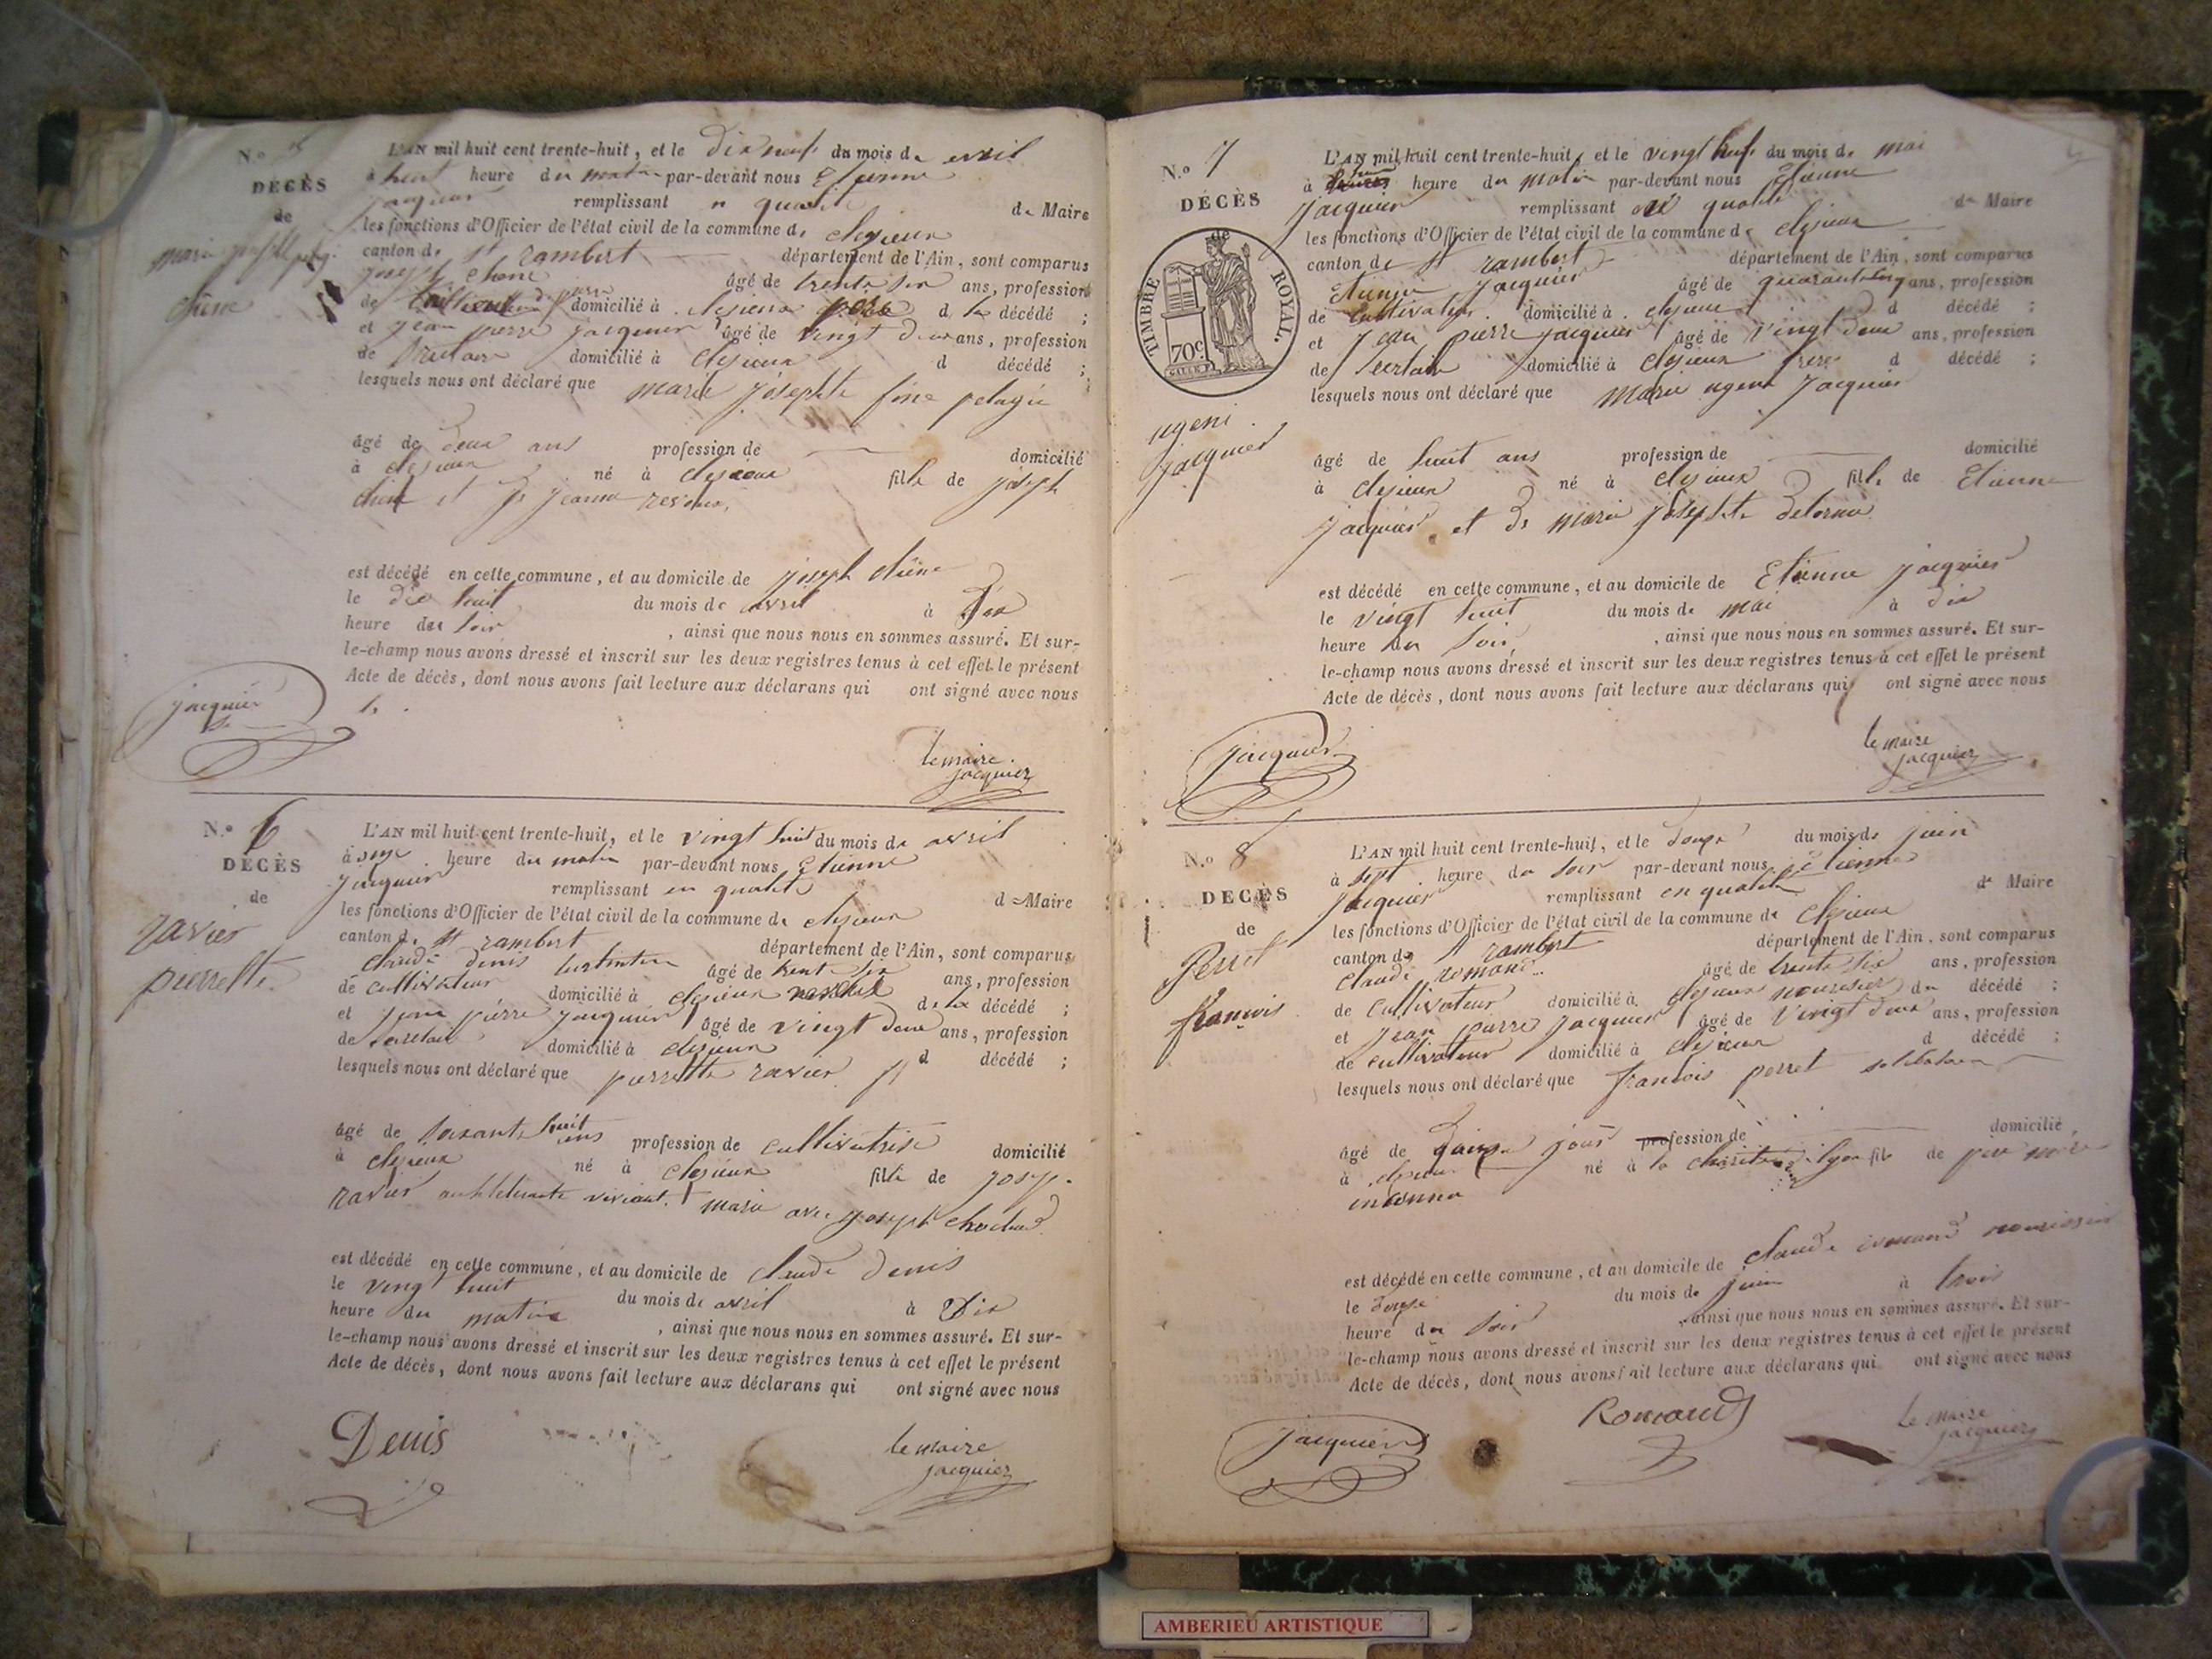 N.o 5
DÉCÈS
de
marie josephte pelag.
chêne
L'AN mil huit cent trente-huit, et le dix neuf du mois de avril
à huit heure du matin par-devant nous Etienne
jacquier remplissant en qualité de Maire
les fonctions d'Officier de l'état civil de la commune de cleyzieux
canton de st rambert département de l'Ain, sont comparus
joseph chene âgé de trente six ans, profession
de domicilié à clesieux père d la décédé ;
et jean pierre jacquier âgé de vingt deux ans, profession
de domicilié à clesieux d décédé ;
lesquels nous ont déclaré que marie josephte pelagie
âgé de deux ans profession de domicilié
à clesieux né à clesieux fille de joseph
et de jeanne
est décédé en cette commune, et au domicile de joseph chêne
le dix huit du mois de avril à dix
heure du soir, ainsi que nous nous en sommes assuré. Et sur-
le-champ nous avons dressé et inscrit sur les deux registres tenus à cet effet le présent
Acte de décès, dont nous avons fait lecture aux déclarans qui ont signé avec nous
jacquier
le maire
jacquier
N.o 6
DÉCÈS
de
ravier
pierrette
L'AN mil huit cent trente-huit, et le vingt huit du mois de avril
à onze heure du matin par-devant nous Etienne
jacquier remplissant en qualité d Maire
les fonctions d'Officier de l'état civil de la commune de clesieux
canton de st rambert département de l'Ain, sont comparus
claude denis âgé de trente six ans, profession
de cultivateur domicilié à clesieux de la décédé ;
et jean pierre jacquier âgé de vingt deux ans, profession
de domicilié à clesieux d décédé ;
lesquels nous ont déclaré que pierrette ravier
âgé de soixante huit ans profession de cultivatrise domicilié
à clesieux né à clesieux fille de josep.
ravier marie avec joseph
est décédé en cette commune, et au domicile de claude denis
le vingt huit du mois de avril à dix
heure du matin, ainsi que nous nous en sommes assuré. Et sur-
le-champ nous avons dressé et inscrit sur les deux registres tenus à cet effet le présent
Acte de décès, dont nous avons fait lecture aux déclarans qui ont signé avec nous
Denis
le maire
jacquier
N.o 7
DÉCÈS
de
TIMBRE ROYAL.
70c.
ugeni
jacquier
L'AN mil huit cent trente-huit, et le vingt huit du mois de mai
à heure du matin par-devant nous Etienne
jacquier remplissant en qualité de Maire
les fonctions d'Officier de l'état civil de la commune de clesieux
canton de st rambert département de l'Ain, sont comparus
Etienne jacquier âgé de quarante cinq ans, profession
de cultivateur domicilié à clesieux d décédé ;
et jean pierre jacquier âgé de vingt deux ans, profession
de domicilié à clesieux frere d décédé ;
lesquels nous ont déclaré que marie ugeni jacquier
âgé de huit ans profession de domicilié
à clesieux né à clesieux fille de Etienne
jacquier et de marie josephte
est décédé en cette commune, et au domicile de Etienne jacquier
le vingt huit du mois de mai à dix
heure du soir, ainsi que nous nous en sommes assuré. Et sur-
le-champ nous avons dressé et inscrit sur les deux registres tenus à cet effet le présent
Acte de décès, dont nous avons fait lecture aux déclarans qui ont signé avec nous
jacquier
le maire
jacquier
N.o 8
DÉCÈS
de
Perret
françois
L'AN mil huit cent trente-huit, et le douze du mois de juin
à sept heure du soir par-devant nous étienne
jacquier remplissant en qualité de Maire
les fonctions d'Officier de l'état civil de la commune de clesieux
canton de st rambert département de l'Ain, sont comparus
claude romand âgé de trente six ans, profession
de cultivateur domicilié à clesieux nouricier du décédé ;
et jean pierre jacquier âgé de vingt deux ans, profession
de cultivateur domicilié à clesieux d décédé ;
lesquels nous ont déclaré que francois perret
âgé de quinze jours profession de domicilié
à clesieux né à la charite de lyon fils de père mère
inconnu
est décédé en cette commune, et au domicile de claude romand
le douze du mois de juin à trois
heure du soir, ainsi que nous nous en sommes assuré. Et sur-
le-champ nous avons dressé et inscrit sur les deux registres tenus à cet effet le présent
Acte de décès, dont nous avons fait lecture aux déclarans qui ont signé avec nous
jacquier
Romand
le maire
jacquier
AMBERIEU ARTISTIQUE